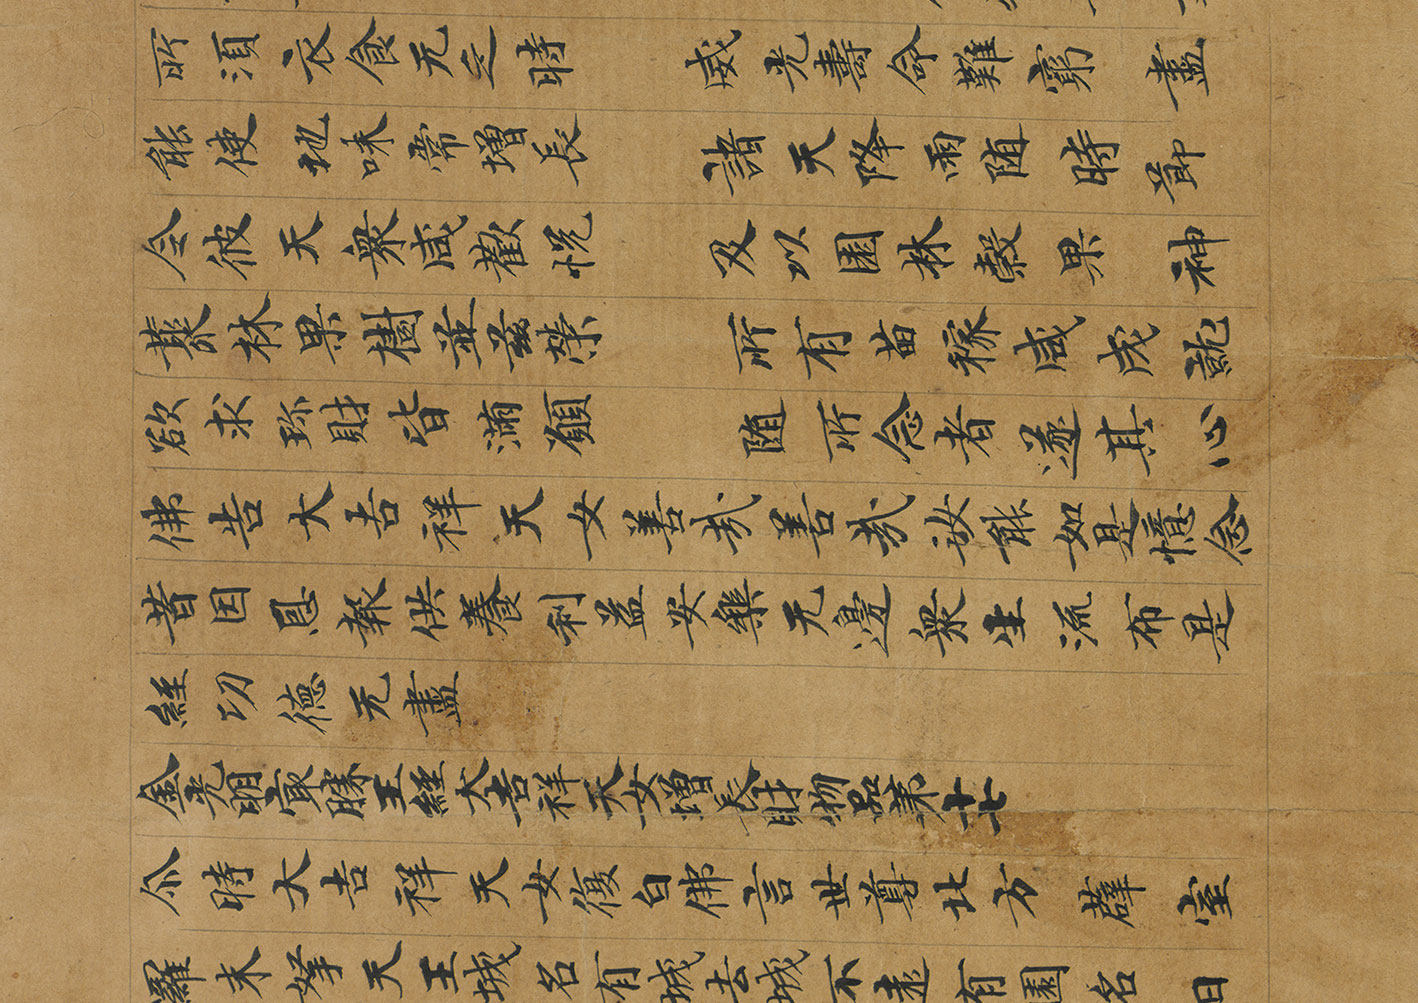 所須衣食无乏時 威光壽命難窮盡
能使地味常增長 諸天降雨随時節
令彼天衆咸歡悦 及以園林穀果神
叢林果樹並滋榮 所有苗稼咸成就
欲求珎財皆滿願 随所念者遂其心
佛告大吉祥天女善哉善哉汝能如是憶念
昔因恩報供養利益安樂无邊衆生流布是
經功德无盡
金光明㝡勝王經大吉祥天女增長財物品第十七
尒時大吉祥天女復白佛言世尊北方薜室
羅末拏天王城名有城去城不遠有園名曰